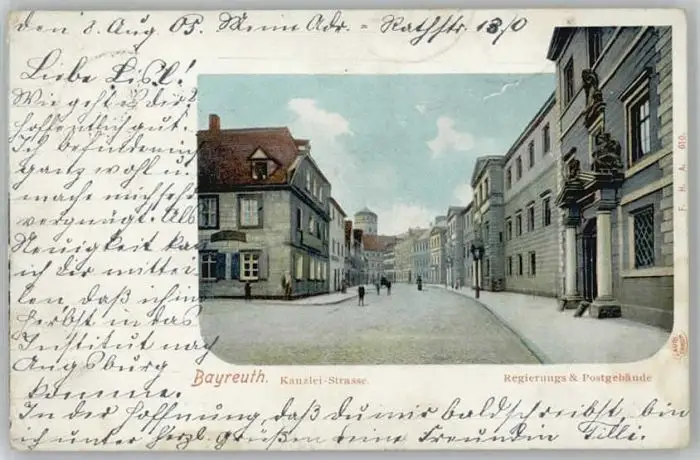 den 8. Aug 05. Meine Adr. = Rathstr. 13/0
Liebe Lisl!
Wie geht es dir?
hoffentlich gut.
Ich befinde mich
ganz wohl u.
mache mich sehr
vergnügt. Als
Neuigkeit kann
ich dir mittei-
len, daß ich im
Herbst in das
Institut nach
Augsburg
komme.
In der Hoffnung, daß du mir bald schreibst, bin
ich unter herzl. Grüßen deine Freundin Tilli.
Bayreuth. Kanzlei-Strasse.
Regierungs & Postgebäude
F. H. A. 610.